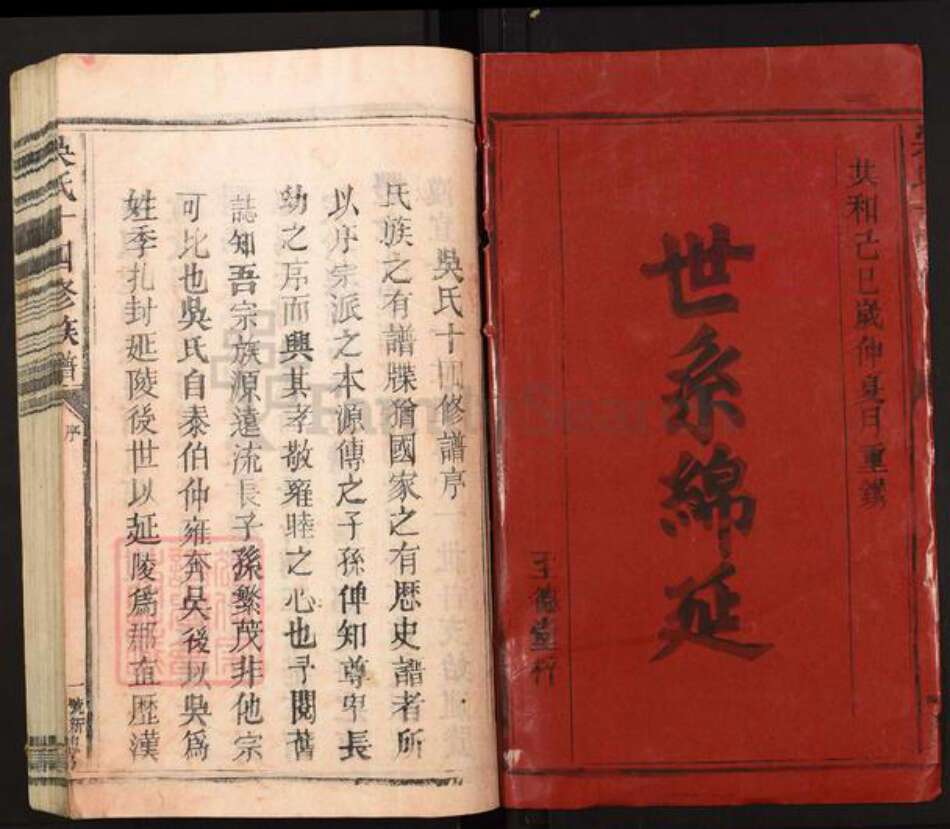 共和己巳歲仲夏月重鐫
世系綿延
德堂梓
吳氏十四修譜序
氏族之有譜牒猶國家之有歷史譜者所
以序宗派之本源傳之子孫俾知尊卑長
幼之序而興其孝敬雍睦之心也予閱舊
誌知吾宗族源遠流長子孫繁茂非他宗
可比也吳氏自泰伯仲雍奔吳後以吳為
姓季扎封延陵後世以延陵為郡直歷漢
吳氏十四修族譜
序
一